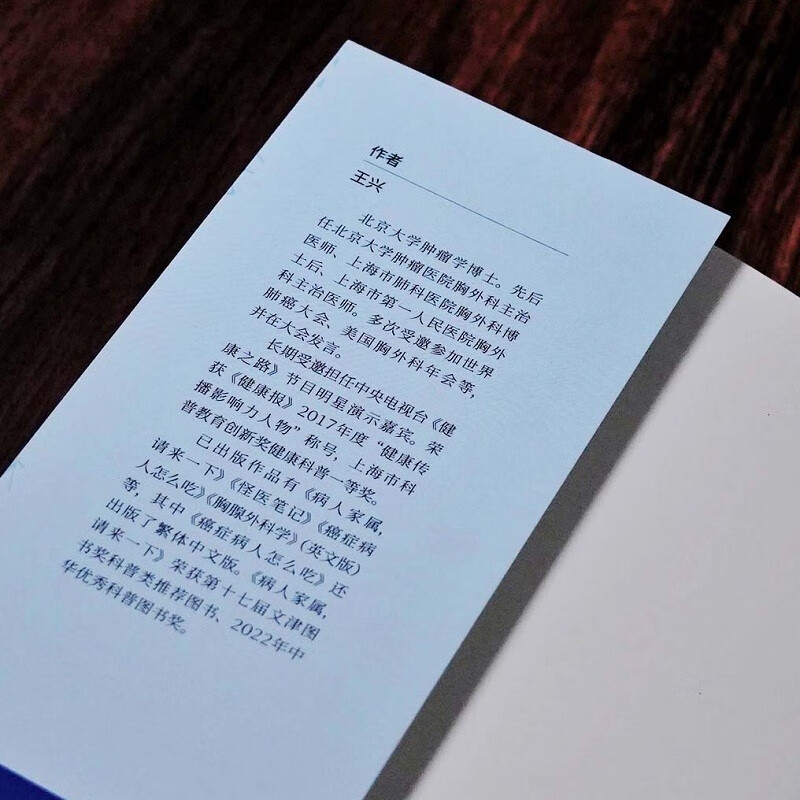 作者
王兴
北京大学肿瘤学博士。先后
任北京大学肿瘤医院胸外科主治
医师、上海市肺科医院胸外科博
士后、上海市第一人民医院胸外
科主治医师。多次受邀参加世界
肺癌大会、美国胸外科年会等，
并在大会发言。
长期受邀担任中央电视台《健
康之路》节目明星演示嘉宾。荣
获《健康报》2017年度“健康传
播影响力人物”称号，上海市科
普教育创新奖健康科普一等奖。
已出版作品有《病人家属，
请来一下》《怪医笔记》《癌症病
人怎么吃》《胸腺外科学》（英文版）
等，其中《癌症病人怎么吃》还
出版了繁体中文版。《病人家属，
请来一下》荣获第十七届文津图
书奖科普类推荐图书、2022年中
华优秀科普图书奖。